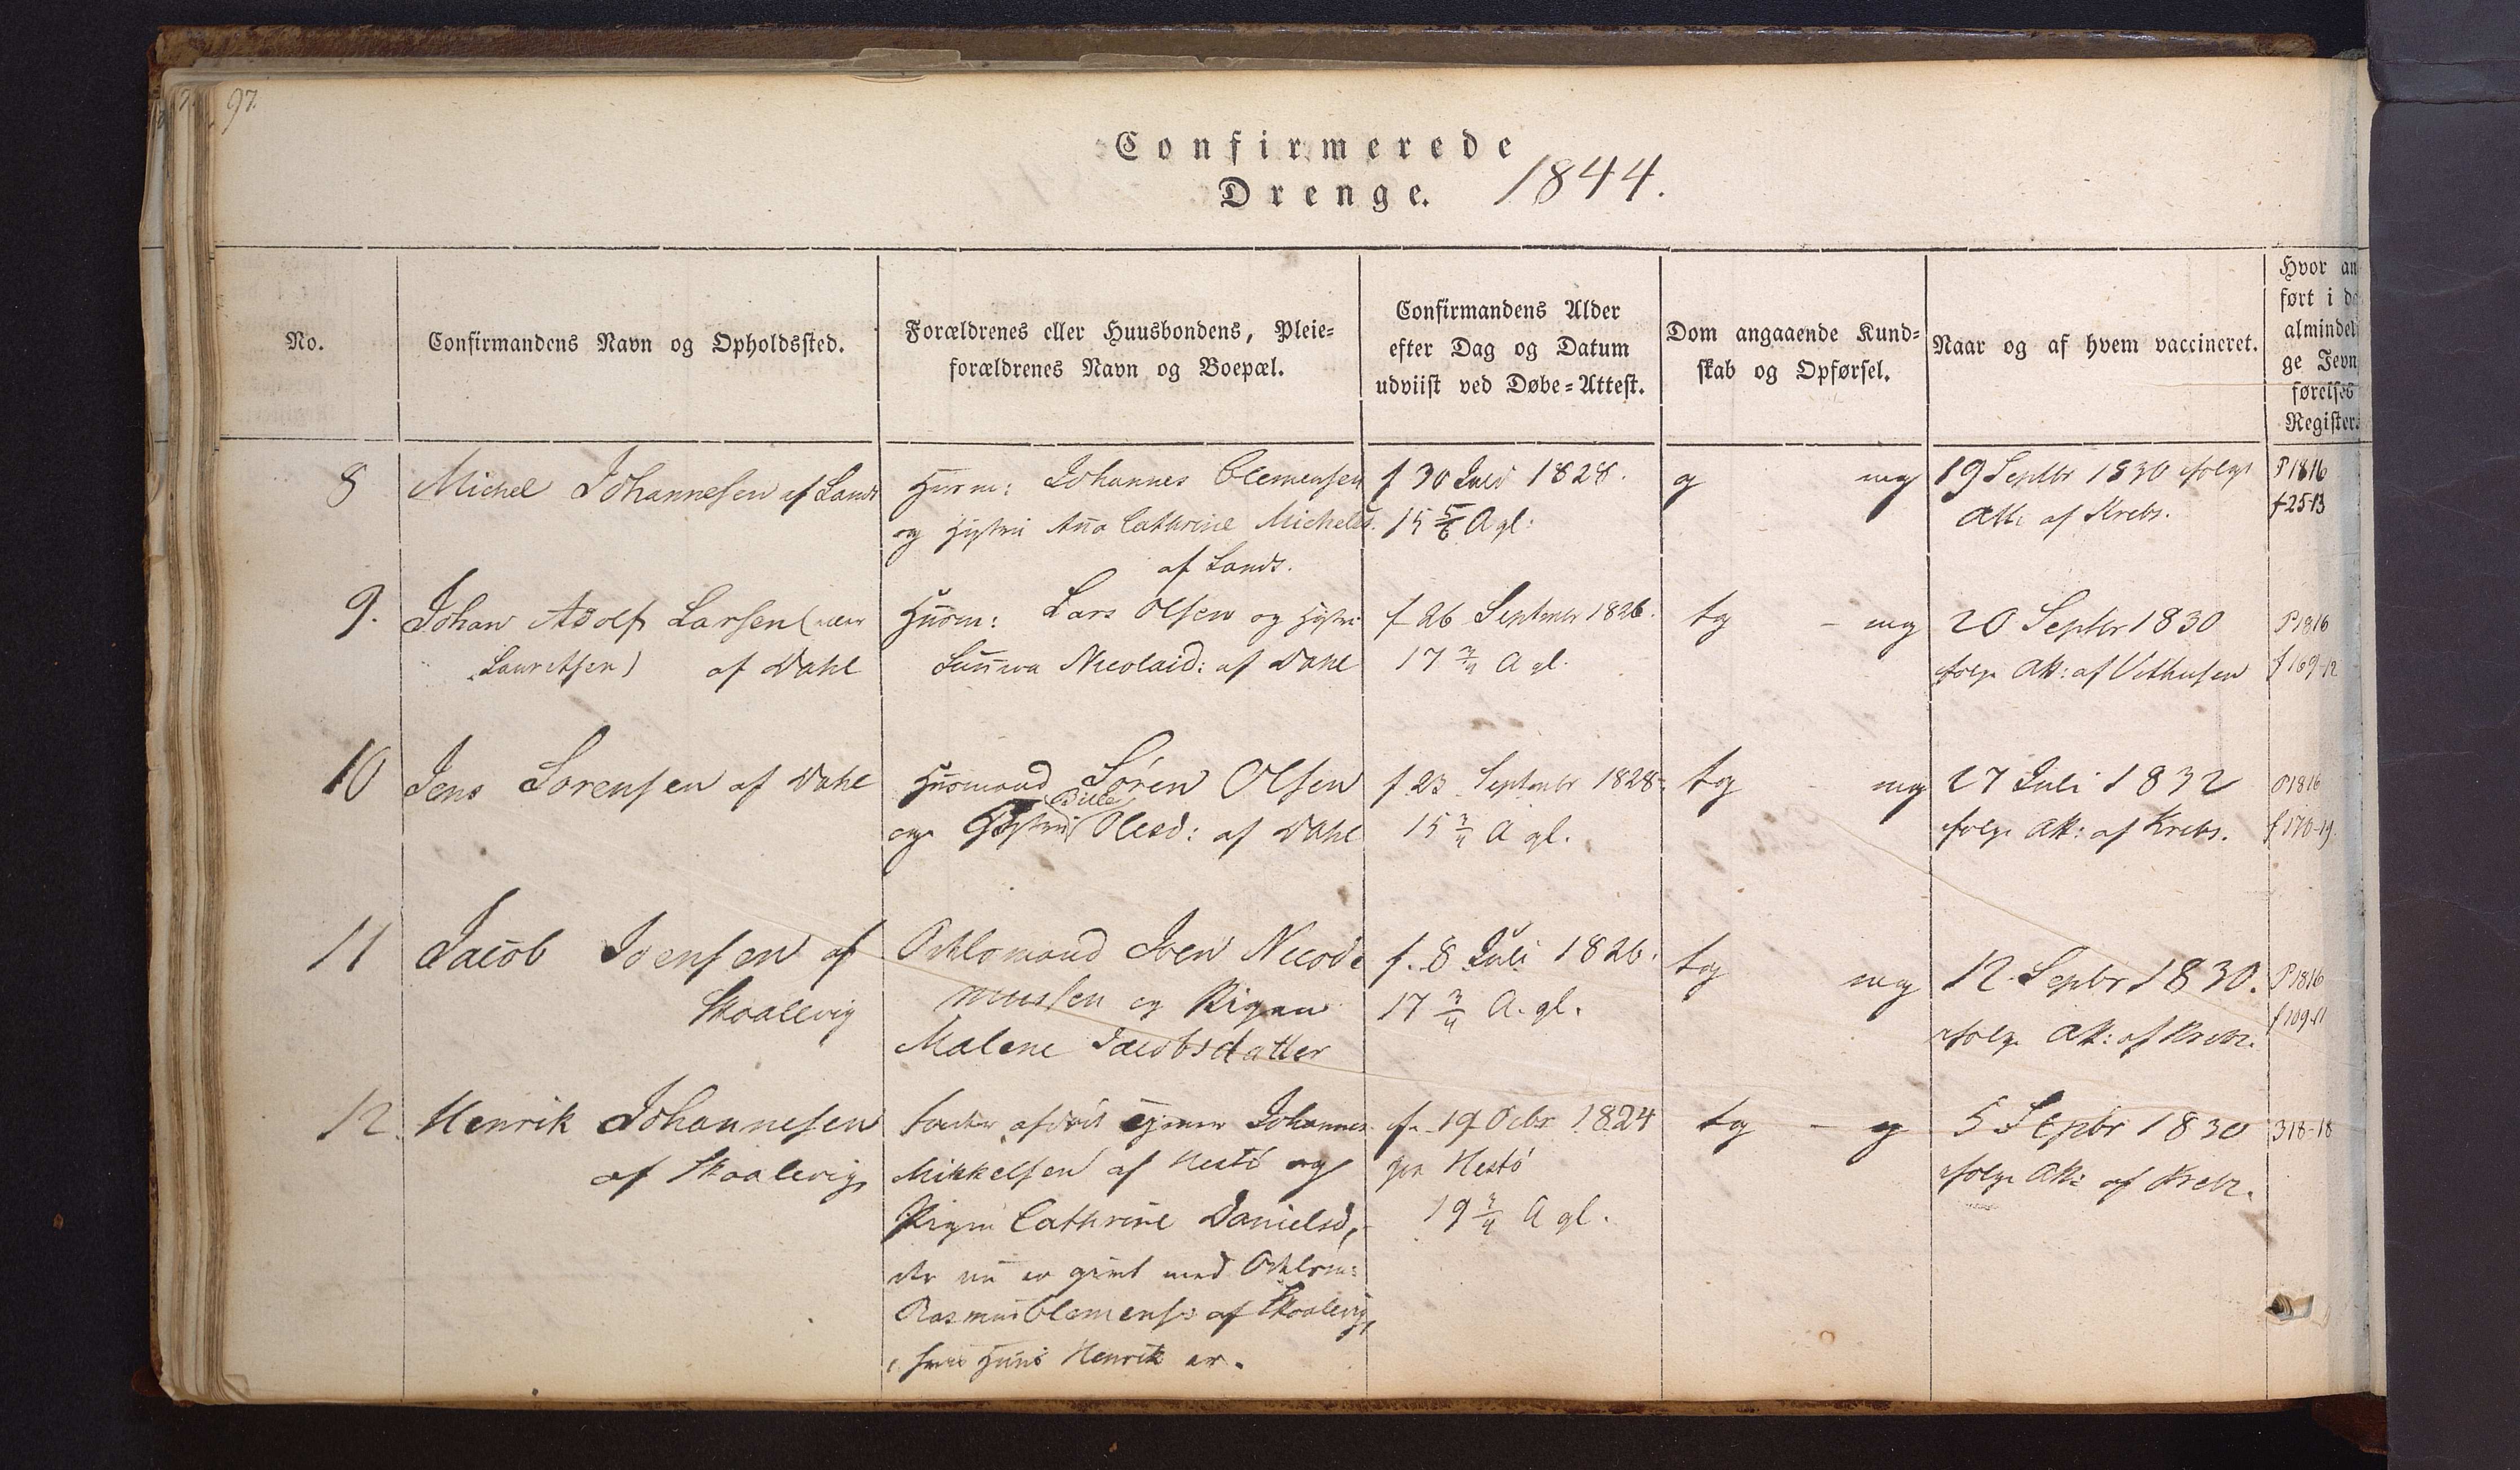 97.
Confirmerede
Drenge. 1844.
No.
Confirmandens Navn og Opholdssted.
Forældrenes eller Huusbondens, Pleie=
forældrenes Navn og Boepæl.
Confirmandens Alder
efter Dag og Datum
udviist ved Døbe=Attest.
Dom angaaende Kund=
skab og Opførsel.
Naar og af hvem vaccineret.
Hvor an
ført i d
almindel
ge Jevn
førelses
Register
8
Michel Johannesen af Sand
Husm: Johannes Clemensen
og Hustru Ana Cathrine Michels.
af Sands.
f 30 1828.
15 5/6 A gl:
g mg
19 Septbr 1830 følge
Att: af Krebs.
P 1816
f 25-13
9.
Johan Adolf Larsen (
Lauritsen) af Dahl
Husm: Lars Olsen og Hustru
Suneva Nicolaid: af Dahl
f 26 Septembr 1826.
17 3/4 A gl.
tg - mg
20 Septbr 1830
følge Att: af Vithusen
P 1816
f 169-12
10
Jens Sorensen af Dahl
Husmand Søren Olsen
og Hustru Olesd: af Dahl
f 23 Septembr 1828.
15 3/4 A gl.
tg - mg
27 Juli 1832
følge Att: af Krebs.
P 1816
f 170-19.
11
Jacob Ivensen af
Skaalevig
Oehlsmand Iven Nicode
mussen og Pigen
Malene Jacobsdatter
f. 8 Juli 1826.
17 3/4 A. gl.
tg mg
12 Sepbr 1830.
følge Att: af Krebs.
P 1816
f 109-11
12.
Henrik Johannesen
af Skaalevig
Johannes
Mikkelsen af Hestø og
Pigen Cathrine Danielsd,
der nu er givt med Oehlsm:
Rasmus Clemens: af Skaalevig,
i hvis Huus Henrik er.
f. 19 Octbr 1824
paa Hestø
19 3/4 A gl.
tg - g
5 Sepbr 1830
følge Att: af Krebs.
318-18